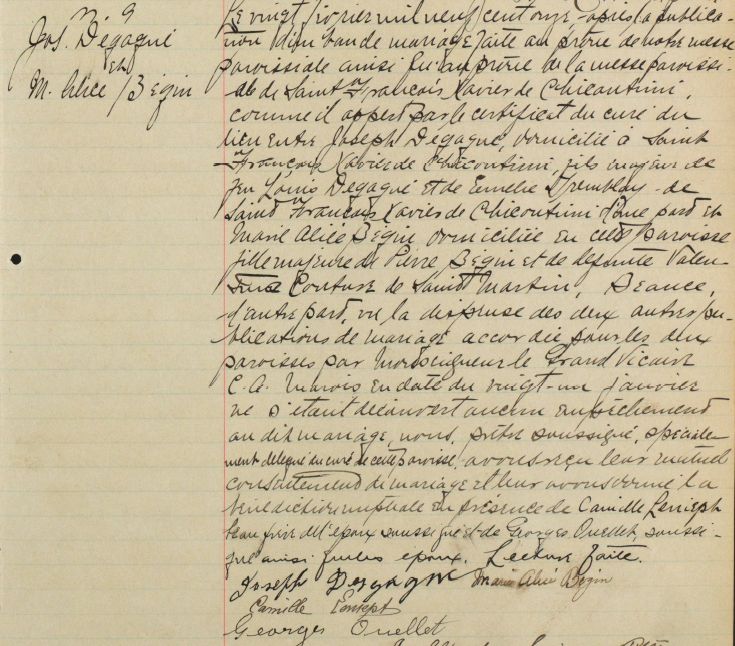 M. 9
Jos. Dégagné
et
M. Alice Bégin
Le vingt février mil neuf cent onze, après la publica-
tion d'un ban de mariage faite au prône de notre messe
paroissiale ainsi qu'au prône de la messe paroissi-
ale de Saint François Xavier de Chicoutimi,
comme il appert par le certificat du curé du
lieu entre Joseph Dégagné, domicilié à Saint
François Xavier de Chicoutimi, fils majeur de
feu Louis Dégagné et de Emelie Tremblay de
Saint François Xavier de Chicoutimi d'une part et
Marie Alice Bégin domiciliée en cette paroisse
fille majeure de Pierre Bégin et de défunte Valen-
Couture de Saint Martin, Beauce,
d'autre part, vu la dispense des deux autres pu-
blications de mariage accordée pour les deux
paroisses par Monseigneur le Grand Vicaire
C. A. Marois en date du vingt-un janvier
ne s'étant découvert aucun empêchement
au dit mariage, nous, prêtre soussigné, spéciale-
ment délégué du curé de cette paroisse, avons reçu leur mutuel
consentement de mariage et leur avons donné la
bénédiction nuptiale en présence de Camille
beau frère de l'époux soussigné et de Georges Ouellet, soussi-
gné ainsi que les époux. Lecture faite.
Joseph Degagne Marie Alice Bégin
Camille
Georges Ouellet